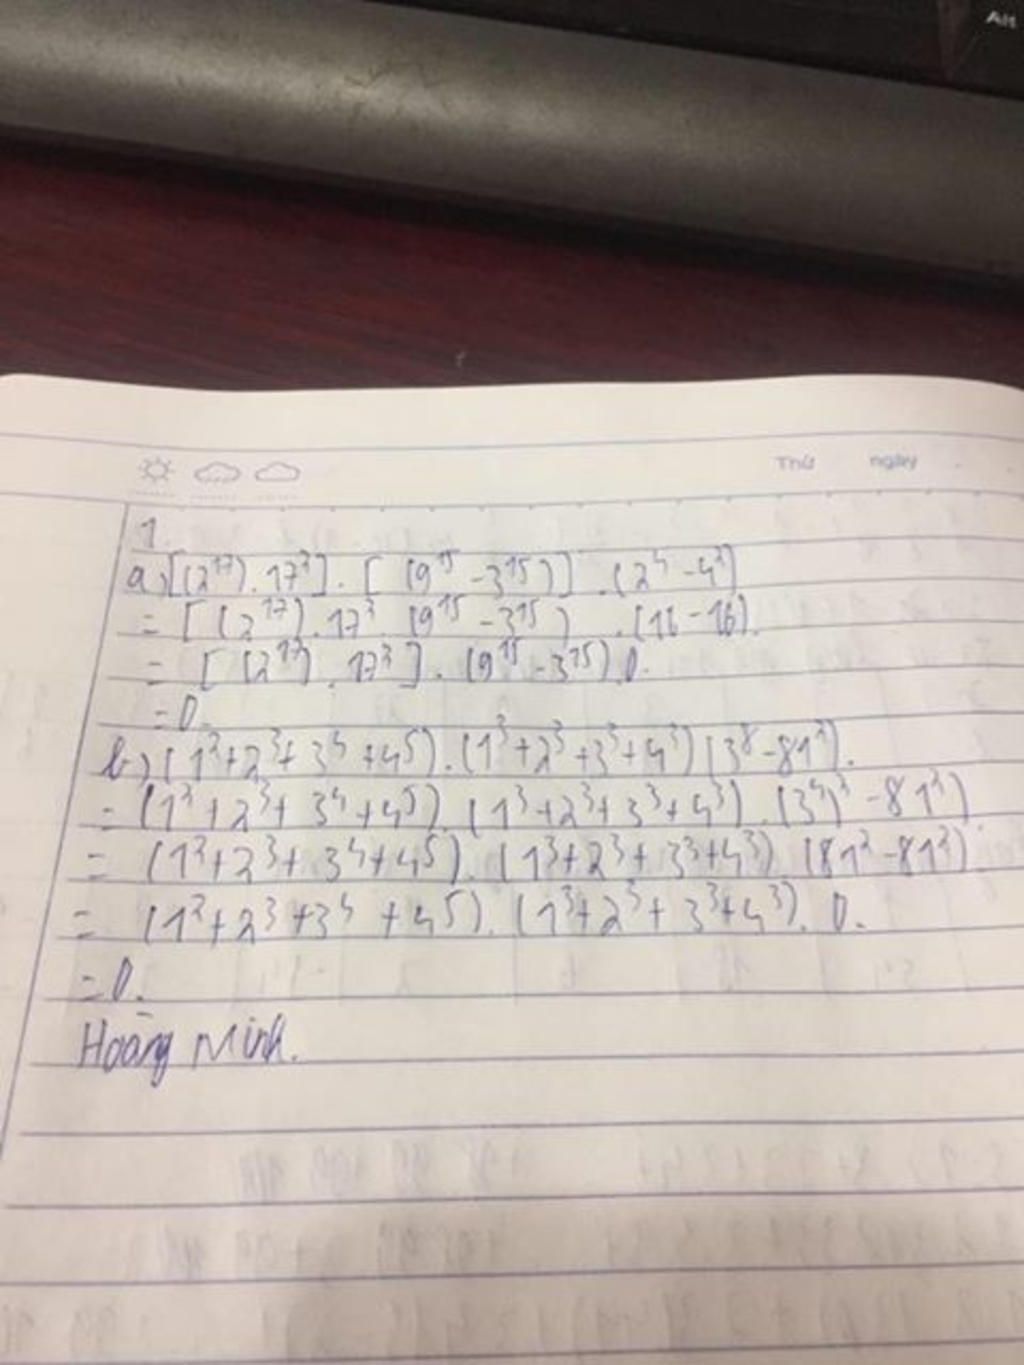 Alt
Thứ ngày
1.
a) [(2¹⁷).17²].[(9¹⁵-3¹⁵)].(2⁴-4²)
= [(2¹⁷).17².(9¹⁵-3¹⁵).(16-16).
= [(2¹⁷).17²].(9¹⁵-3¹⁵).0.
=0.
b) (1²+2³+3⁴+4⁵).(1³+2³+3³+4³)(3⁸-81²).
= (1²+2³+3⁴+4⁵).(1³+2³+3³+4³).(3⁴)²-81²).
= (1²+2³+3⁴+4⁵).(1³+2³+3³+4³).(81²-81²).
= (1²+2³+3⁴+4⁵).(1³+2³+3³+4³).0.
=0.
Hoàng Minh.